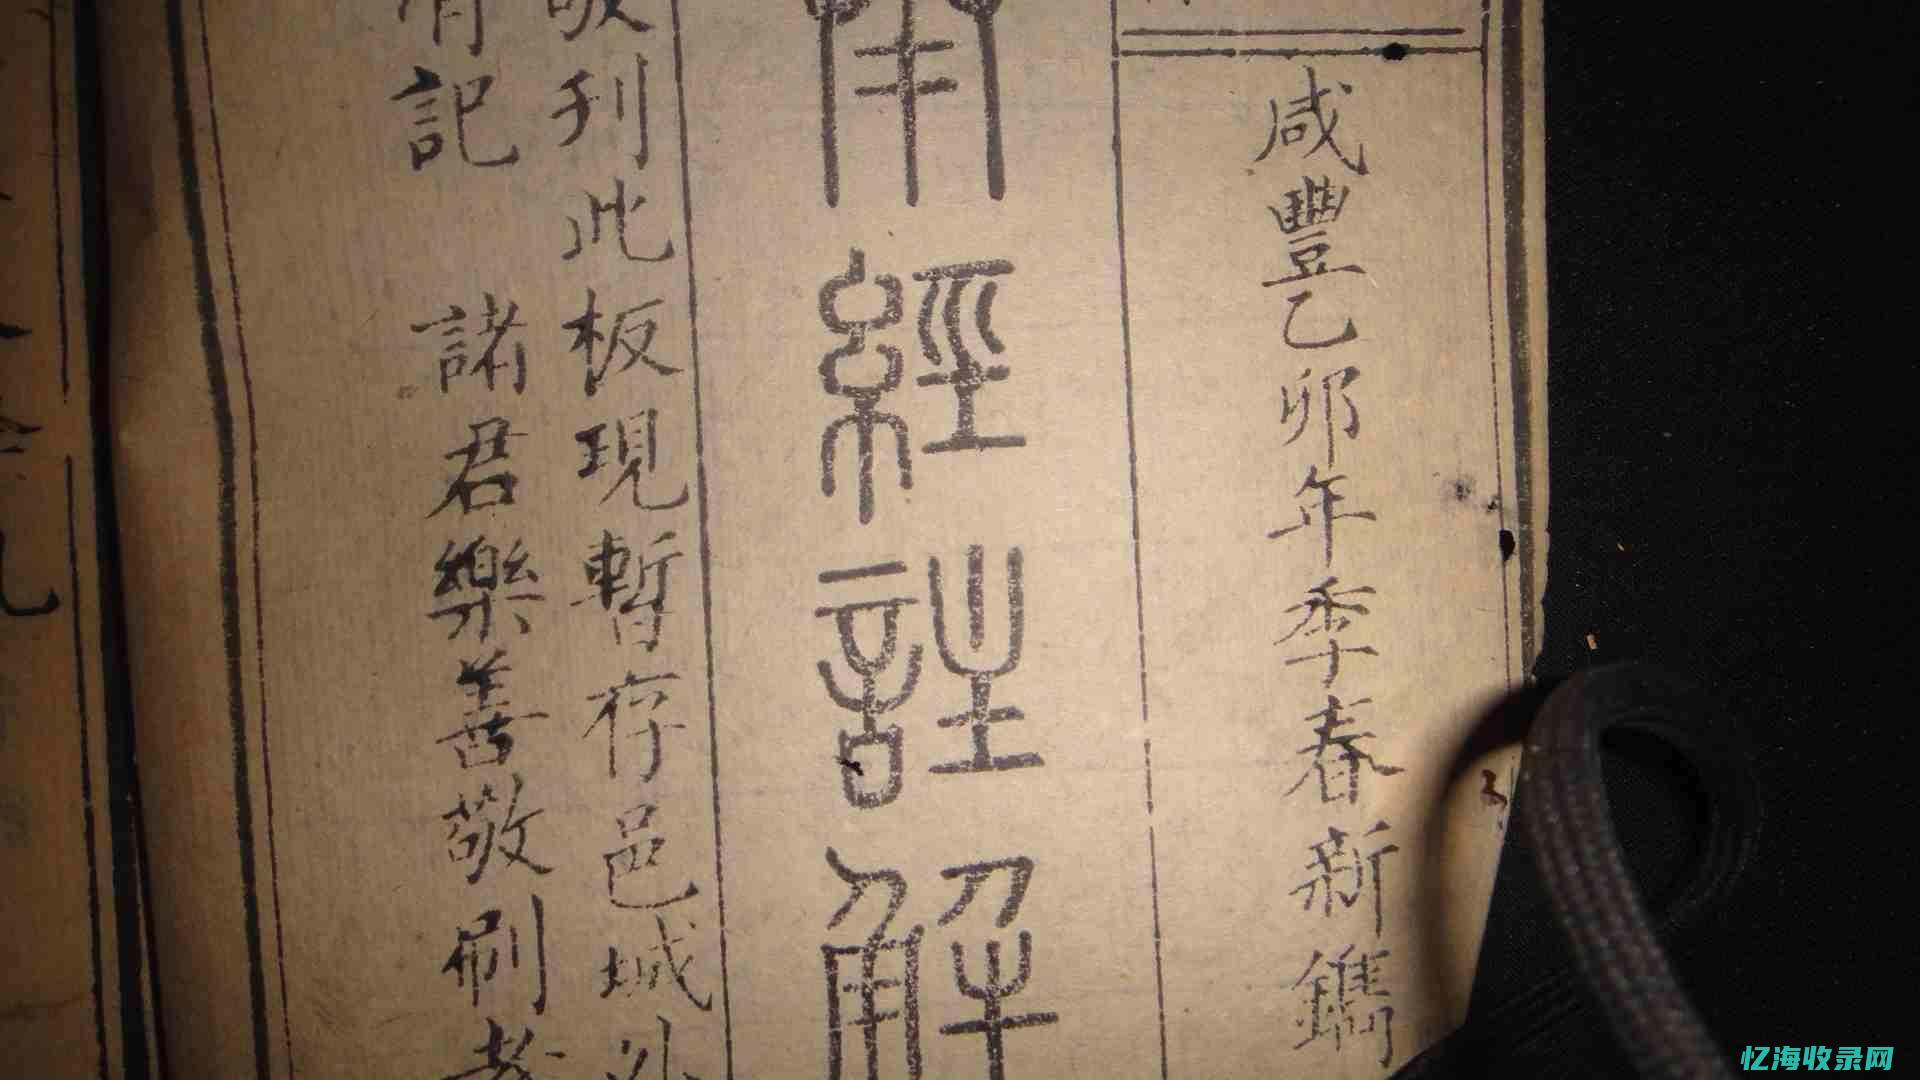 咸豐乙卯年季春新鐫
南經註解
敬刊此板現暫存邑城外
記 諸君樂善敬刷者
忆海收录网